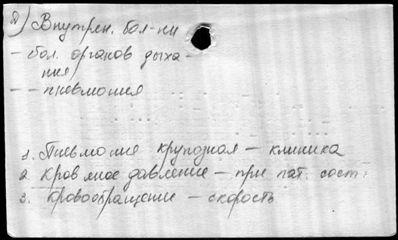 Я) Внутрен. бол-ни
– бол. органов дыха –
ния
– – пневмония
1. Пневмония крупозная – клиника
2. Кровяное давление – при пат. сост.
3. Кровообращение – скорость